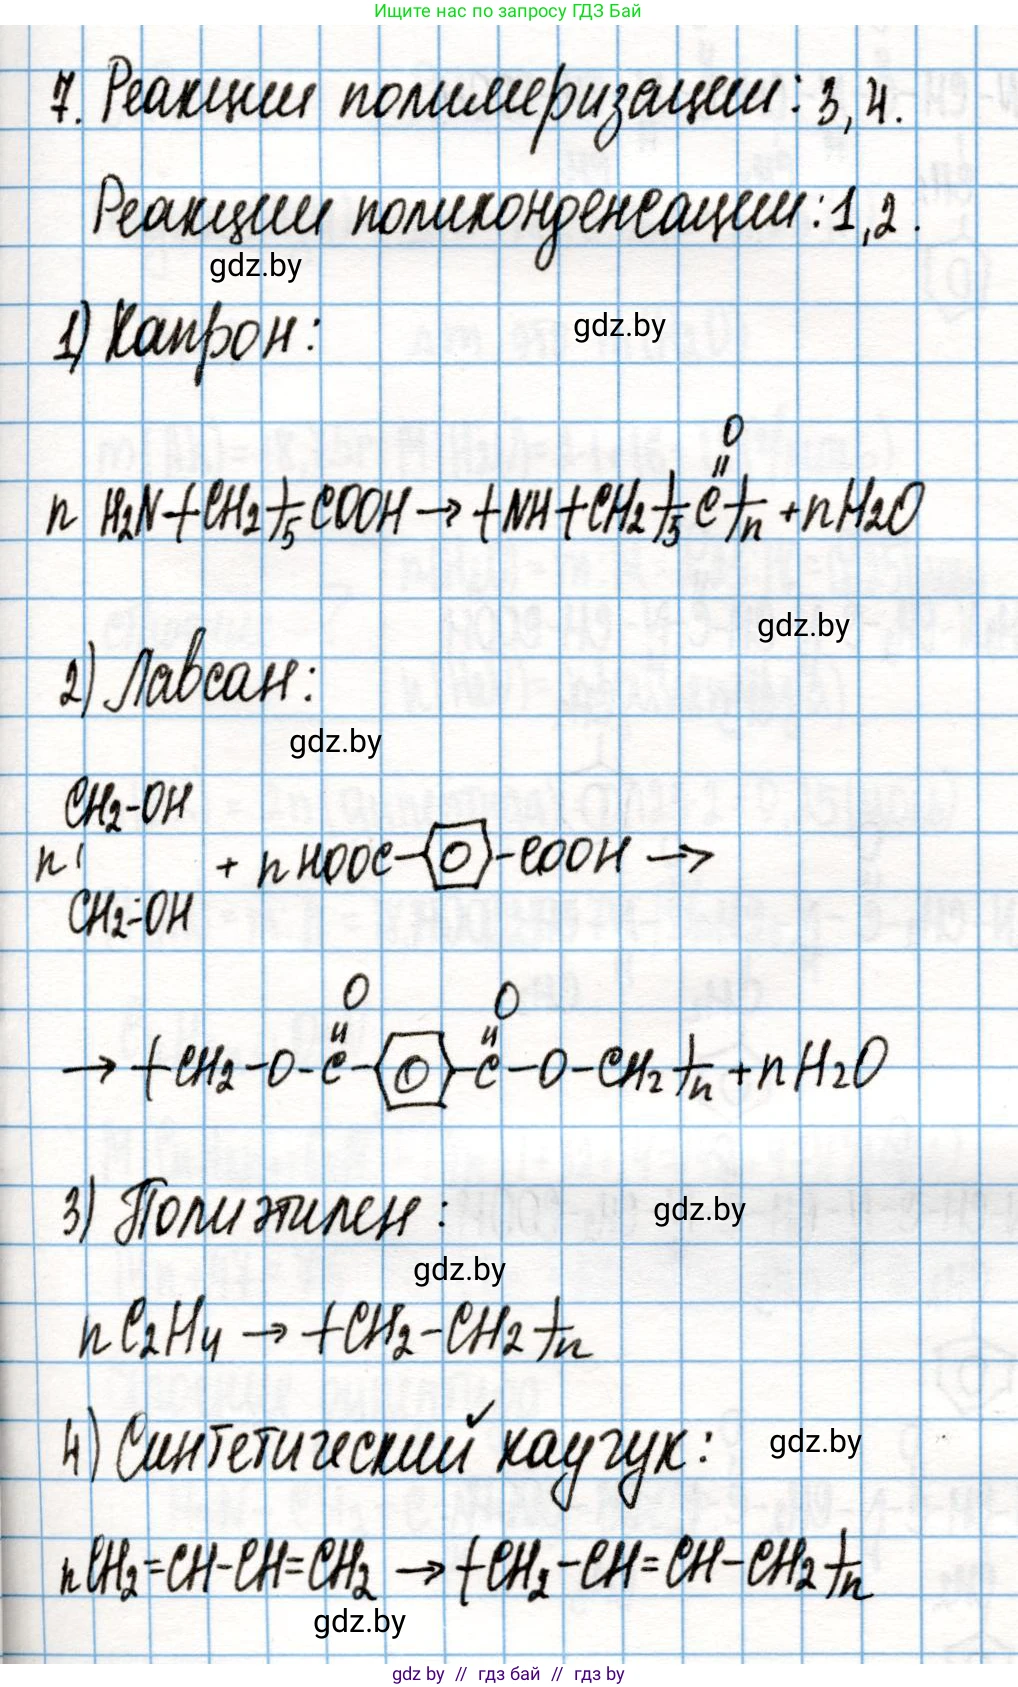 Ищите нас по запросу ГДЗ Бай
7. Реакции полимеризации: 3, 4.
Реакции поликонденсации: 1, 2.
gdz.by
1) Капрон:
gdz.by
O
n H2N-(CH2)-5COOH → (-NH-(CH2)-5C-)-n + nH2O
gdz.by
2) Лавсан:
gdz.by
CH2-OH
n | + nHOOC-⌬-COOH →
CH2-OH
O O
→ (-CH2-O-C-⌬-C-O-CH2-)n + nH2O
3) Полиэтилен:
gdz.by
gdz.by
nC2H4 → (-CH2-CH2-)n
4) Синтетический каучук:
gdz.by
nCH2=CH-CH=CH2 → (-CH2-CH=CH-CH2-)n
gdz.by
gdz by // гдз бай // gdz by